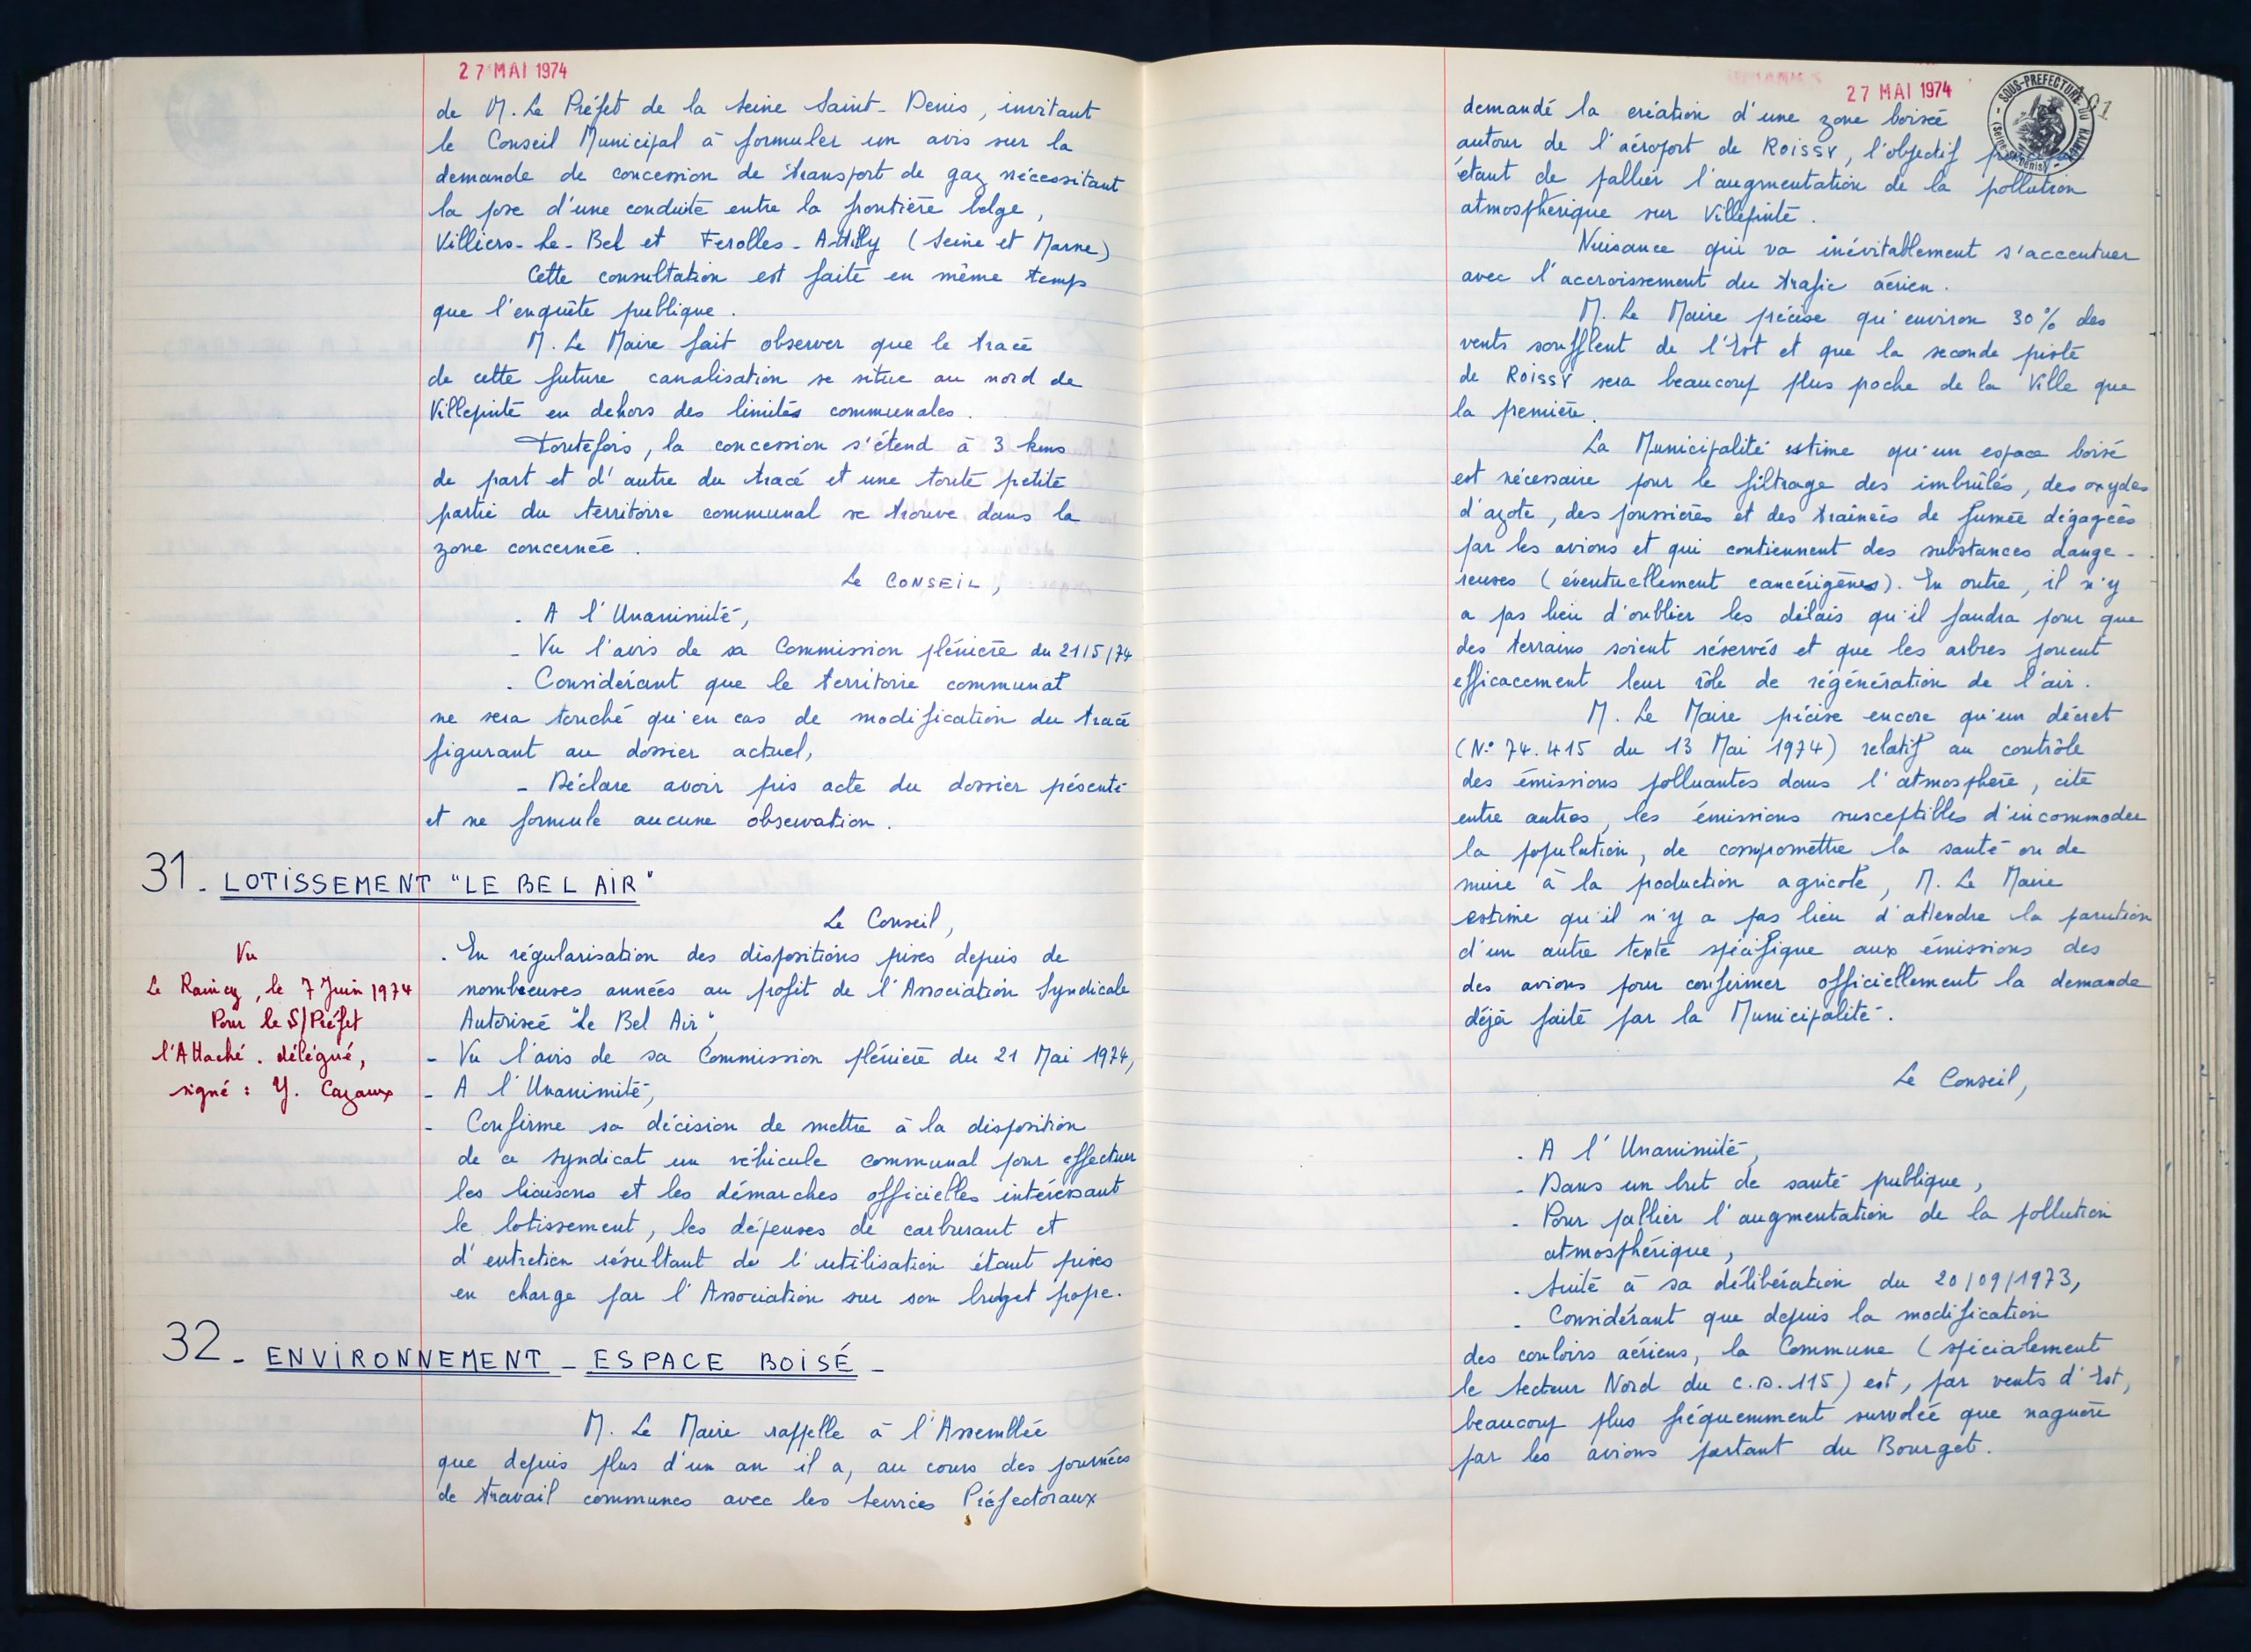 27 MAI 1974
de M. Le Préfet de la Seine Saint-Denis, invitant
le Conseil Municipal à formuler un avis sur la
demande de concession de transport de gaz nécessitant
la pose d'une conduite entre la frontière belge,
Villiers-Le-Bel et Ferolles-Attilly (Seine et Marne)
Cette consultation est faite en même temps
que l'enquête publique.
M. Le Maire fait observer que le tracé
de cette future canalisation se situe au nord de
Villepinte en dehors des limites communales.
Toutefois, la concession s'étend à 3 kms
de part et d'autre du tracé et une toute petite
partie du territoire communal se trouve dans la
zone concernée.
Le CONSEIL,
. A l'Unanimité,
- Vu l'avis de sa Commission plénière du 21/5/74
. Considérant que le territoire communal
ne sera touché qu'en cas de modification du tracé
figurant au dossier actuel,
- Déclare avoir pris acte du dossier présenté
et ne formule aucune observation.
31. LOTISSEMENT "LE BEL AIR"
Le Conseil,
. En régularisation des dispositions prises depuis de
nombreuses années au profit de l'Association Syndicale
Autorisée "Le Bel Air",
- Vu l'avis de sa Commission plénière du 21 Mai 1974,
- A l'Unanimité,
- Confirme sa décision de mettre à la disposition
de ce syndicat un véhicule communal pour effectuer
les liaisons et les démarches officielles intéressant
le lotissement, les dépenses de carburant et
d'entretien résultant de l'utilisation étant prises
en charge par l'Association sur son budget propre.
Vu
Le Raincy, le 7 Juin 1974
Pour le S/Préfet
l'Attaché. délégué,
signé : Y. Cazaux
32- ENVIRONNEMENT - ESPACE BOISÉ -
M. Le Maire rappelle à l'Assemblée
que depuis plus d'un an il a, au cours des journées
de travail communes avec les Services Préfectoraux
27 MAI 1974
SOUS-PREFECTURE DU RAINCY
(Seine-St-Denis)
demandé la création d'une zone boisée
autour de l'aéroport de ROISSY, l'objectif
étant de pallier l'augmentation de la pollution
atmosphérique sur Villepinte.
Nuisance qui va inévitablement s'accentuer
avec l'accroissement du trafic aérien.
M. Le Maire précise qu'environ 30% des
vents soufflent de l'Est et que la seconde piste
de ROISSY sera beaucoup plus poche de la Ville que
la première.
La Municipalité estime qu'un espace boisé
est nécessaire pour le filtrage des imbrûlés, des oxydes
d'azote, des poussières et des traînées de fumée dégagées
par les avions et qui contiennent des substances dange-
reuses (éventuellement cancérigènes). En outre, il n'y
a pas lieu d'oublier les délais qu'il faudra pour que
des terrains soient réservés et que les arbres jouent
efficacement leur rôle de régénération de l'air.
M. Le Maire précise encore qu'un décret
(N° 74.415 du 13 Mai 1974) relatif au contrôle
des émissions polluantes dans l'atmosphère, cite
entre autres, les émissions susceptibles d'incommoder
la population, de compromettre la santé ou de
nuire à la production agricole, M. Le Maire
estime qu'il n'y a pas lieu d'attendre la parution
d'un autre texte spécifique aux émissions des
des avions pour confirmer officiellement la demande
déjà faite par la Municipalité.
Le Conseil,
. A l'Unanimité,
- Dans un but de santé publique,
- Pour pallier l'augmentation de la pollution
atmosphérique,
. Suite à sa délibération du 20/09/1973,
- Considérant que depuis la modification
des couloirs aériens, la Commune (spécialement
le secteur Nord du C.D. 115) est, par vents d'Est,
beaucoup plus fréquemment survolée que naguère
par les avions partant du Bourget.